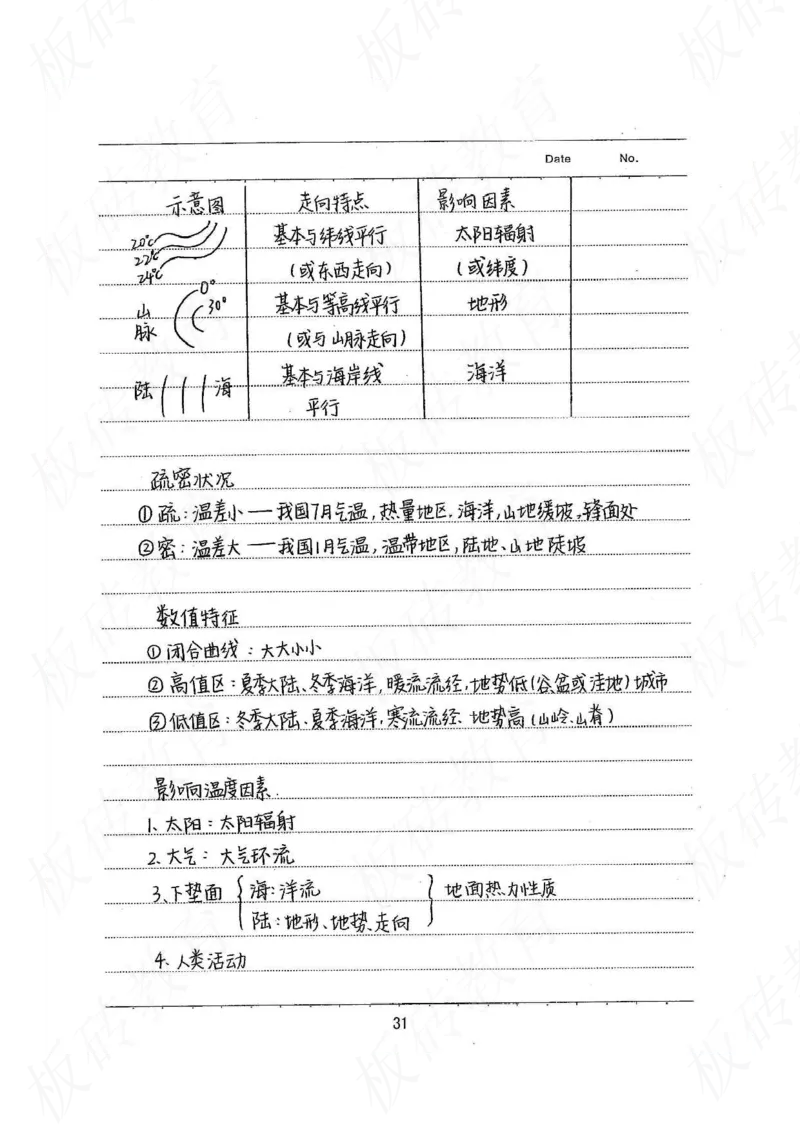 Date No.
示意图 走向特点 影响因素
20℃ 基本与纬线平行 太阳辐射
22℃
24℃ （或东西走向） （或纬度）
0° 基本与等高线平行 地形
山 30°
脉 （或与山脉走向）
陆 海 基本与海岸线 海洋
平行
疏密状况
①疏：温差小——我国7月气温，热量地区，海洋，山地缓坡，锋面处
②密：温差大——我国1月气温，温带地区，陆地、山地陡坡
数值特征
①闭合曲线：大大小小
②高值区：夏季大陆、冬季海洋，暖流流经，地势低（谷盆或洼地）城市
③低值区：冬季大陆、夏季海洋，寒流流经、地势高（山岭、山脊）
影响温度因素
1、太阳：太阳辐射
2、大气：大气环流
3、下垫面 { 海：洋流 } 地面热力性质
陆：地形、地势、走向
4、人类活动
31
板砖教育